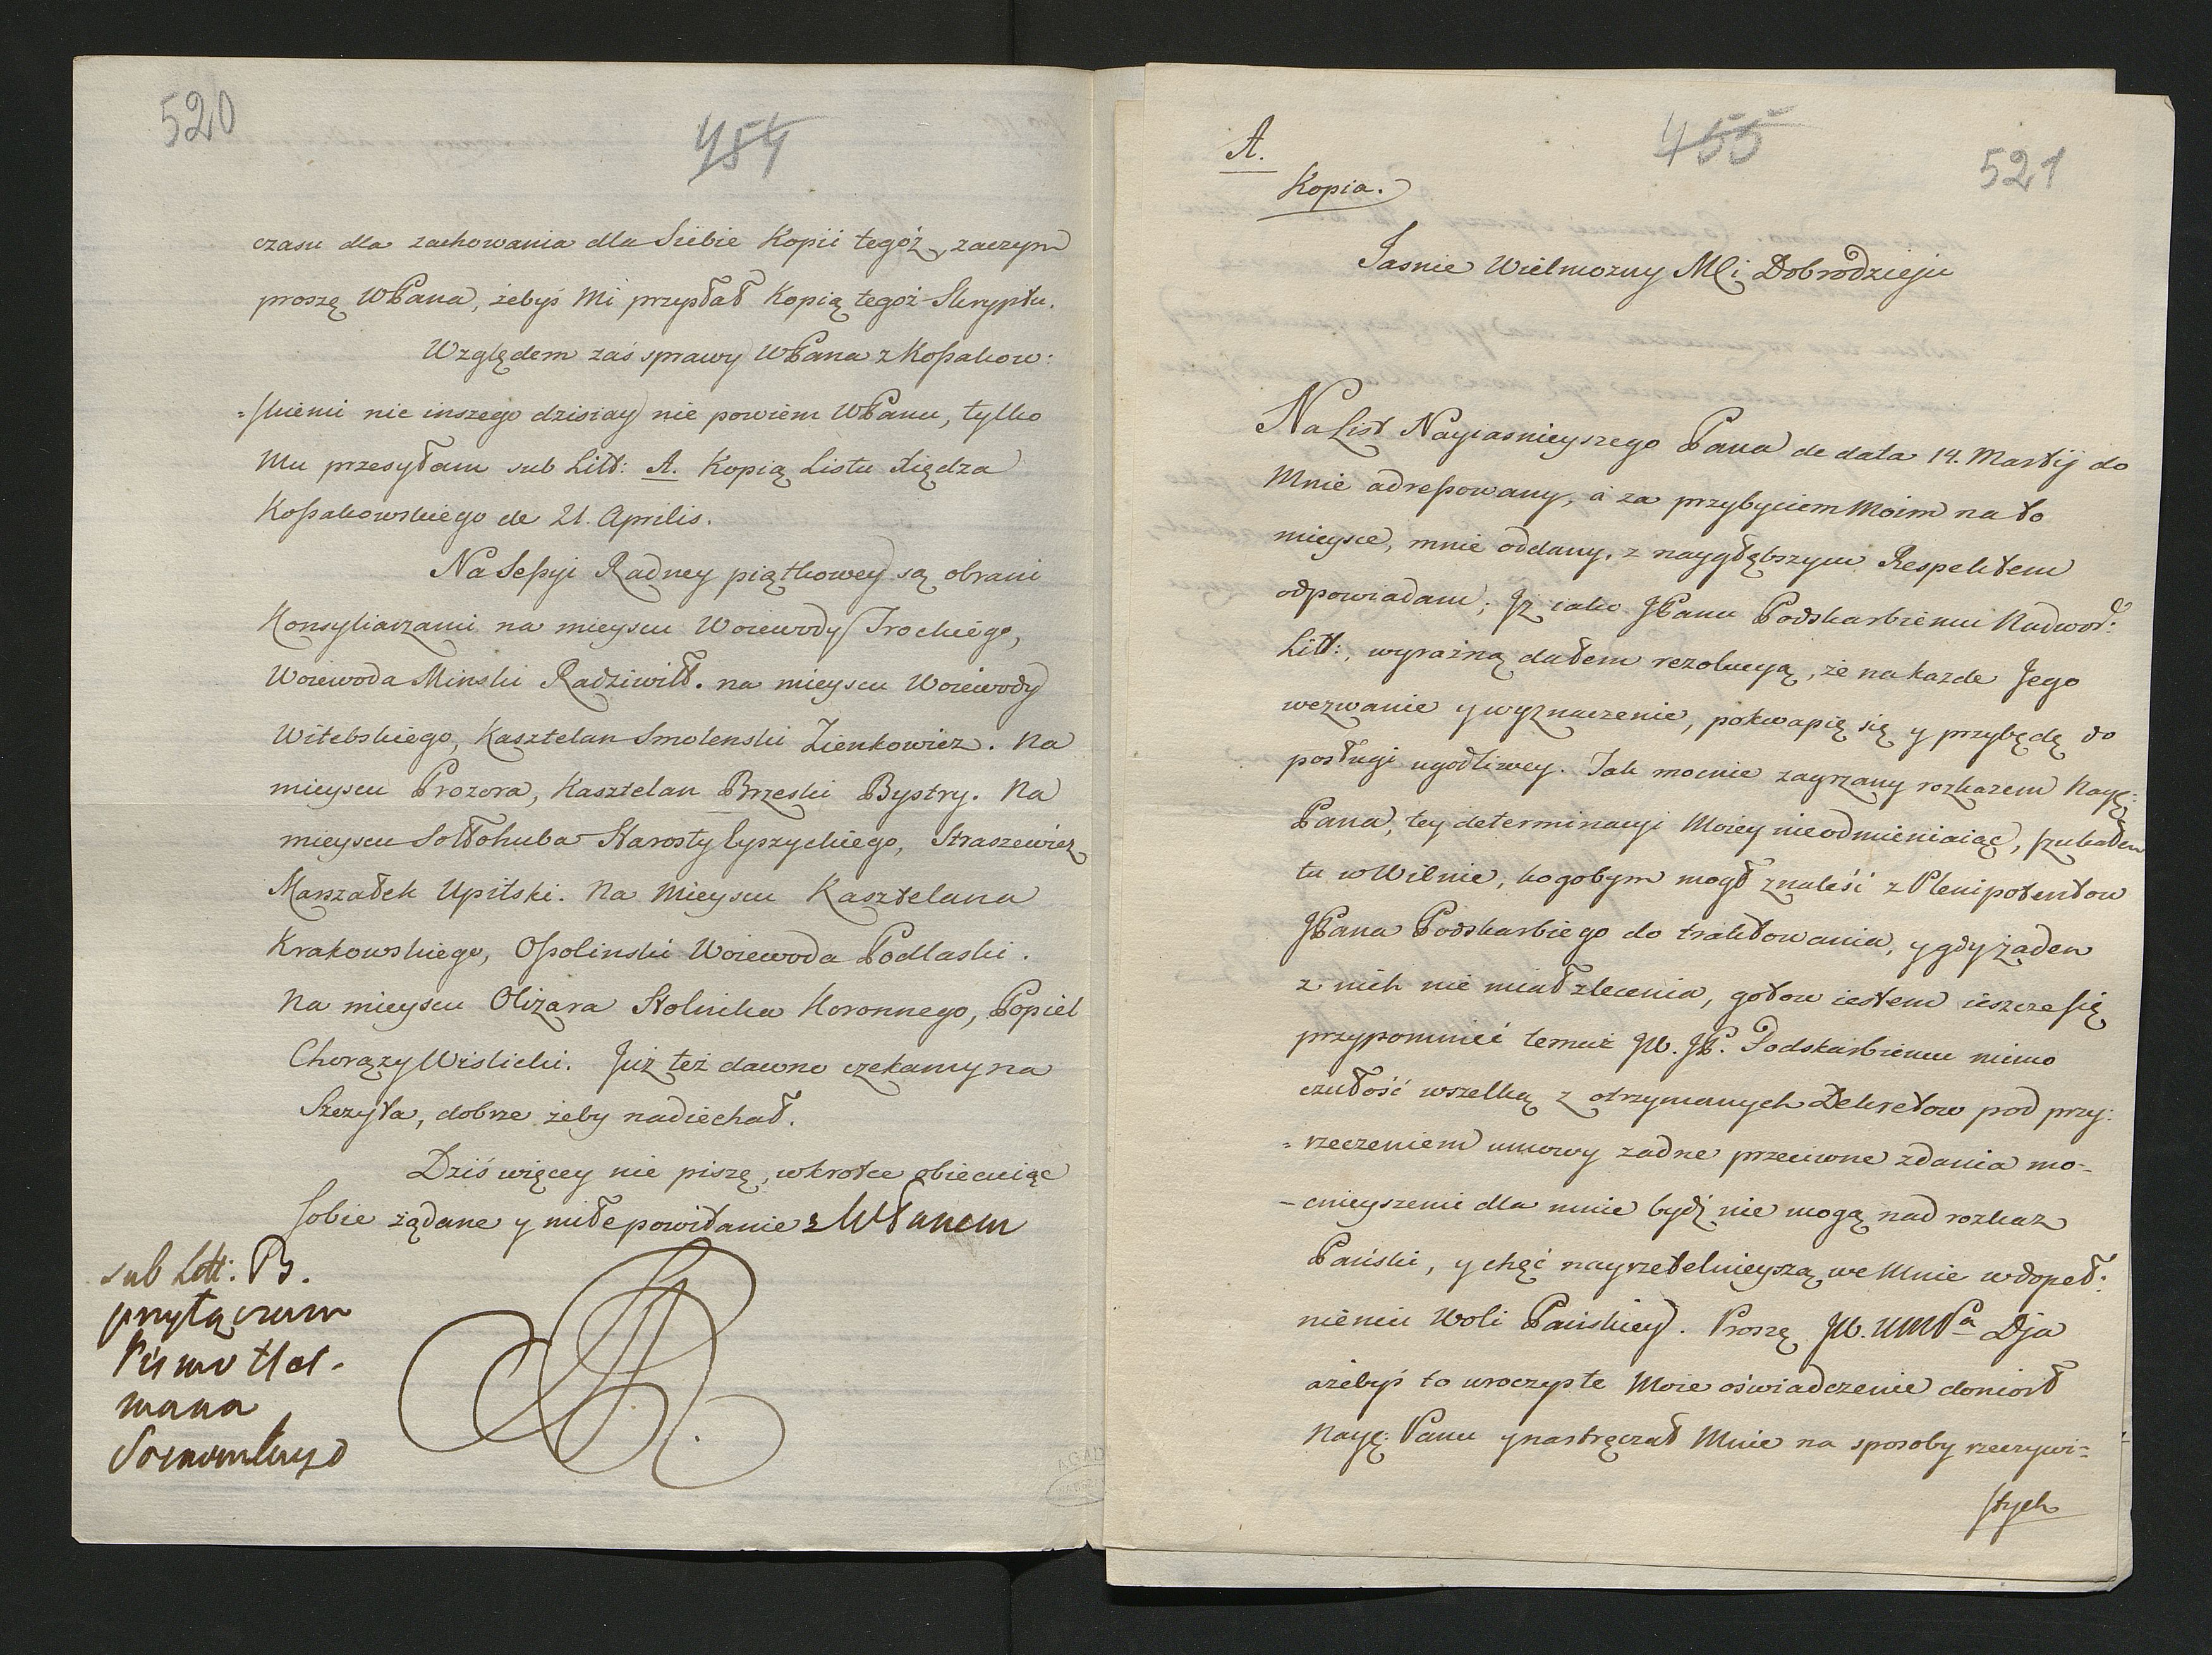 520
454
czasu dla zachowania dla Siebie Kopii tegóż, zaczym
proszę WPana, żebyś Mi przysłał Kopią tegoż Skryptu.
Względem zaś sprawy WPana z Kossakow:
=skiemi nic inszego dzisiay nie powiem WPanu, tylko
Mu przesyłam sub Litt: A. Kopią Listu Xiędza
Kossakowskiego de 21. Aprilis.
Na Sessyi Radney piątkowey są obrani
Konsyliarzami na mieyscu Woiewody Trockiego,
Woiewoda Minski Radziwiłł. na mieyscu Woiewody
Witebskiego, Kasztelan Smolenski Zienkowicz. Na
mieyscu Prozora, Kasztelan Brzeski Bystry. Na
mieyscu Sołłohuba Starosty Eyszyckiego, Straszewicz
Marszałek Upitski. Na Mieyscu Kasztelana
Krakowskiego, Ossolinski Woiewoda Podlaski.
Na mieyscu Olizara Stolnika Koronnego, Popiel
Chorąży Wislicki. Już też dawno czekamy na
Szczyta, dobrze żeby nadiechał.
Dziś więcey nie piszę, wkrotce obiecuiąc
sobie żądane y miłe powitanie z WPanem
sub Litt: B.
przyłączam
Pismo Het-
mana
SAR
A.
455
521
Kopia.
Jasnie Wielmozny Mci Dobrodzieju
Na List Nayiasnieyszego Pana de data 14. Martij do
Mnie adressowany, á za przybyciem Moim na to
mieysce, mnie oddany, z naygłębszym Respektem
odpowiadam; Iż iako JPanu Podskarbiemu Nadwor:
Litt:, wyraźną dałem rezolucyą, że na kazde Jego
wezwanie y wyznaczenie, pokwapię się y przybędę do
posługi ugodliwey. Tak mocnie zagrzany rozkazem Nayę:
Pana, tey determinacyi Moiey nieodmieniaiąc, szukałem
tu w Wilnie, kogobym mogł znaleść z Plenipotentow
JPana Podskarbiego do traktowania, y gdy żaden
z nich nie miał zlecenia, gotow iestem ieszcze się
przypomnieć temuż JW. JP. Podskarbiemu mimo
czułość wszelką z otrzymanych Dekretow pod przy:
=rzeczeniem umowy zadne przeciwne zdania mo-
-cnieyszemi dla mnie bydź nie mogą nad rozkaz
Pański, y chęć nayrzetelnieyszą we Mnie w dopeł:
nieniu Woli Pańskiey. Proszę JW. WMPa Dja
ażebyś to uroczyste Moie oświadczenie doniosł
Nayę: Panu y nastręczał Mnie na sposoby rzeczywi=
stych